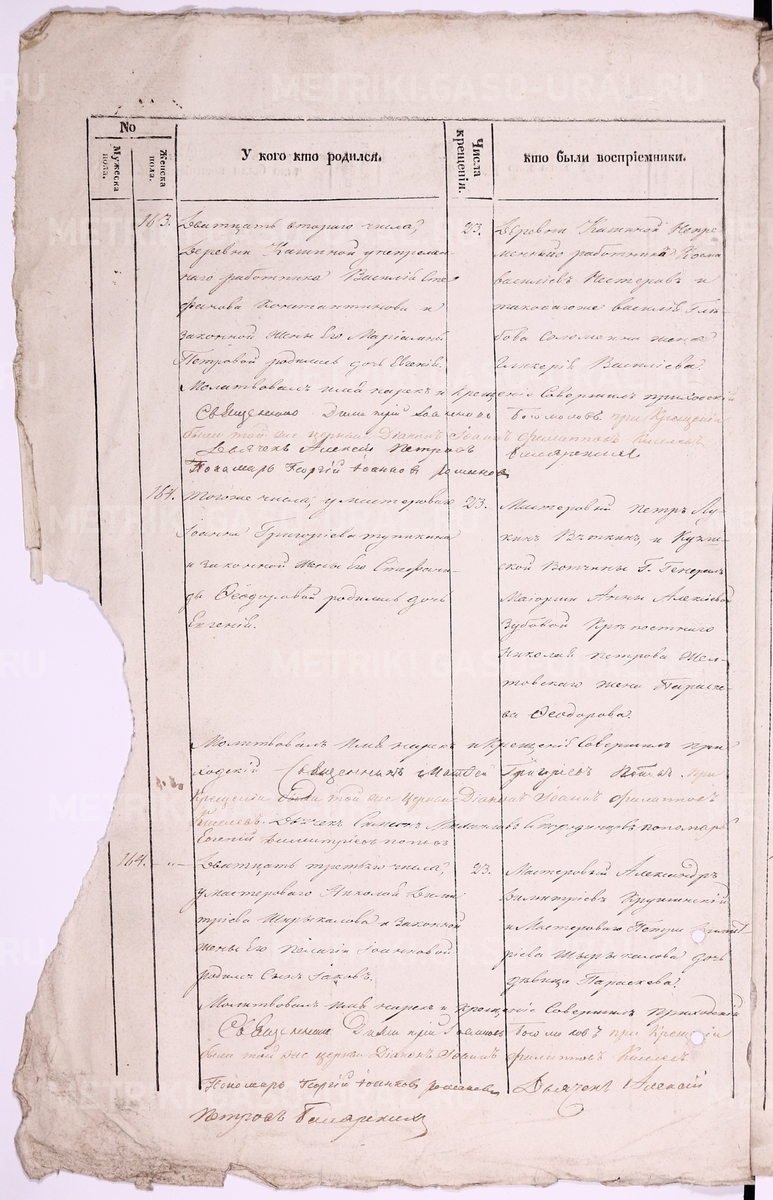 METRIKI.GASO-URAL.RU
No
Мужеска пола.
Женска пола.
У кого кто родился.
Числа крещенія.
кто были воспріемники.
163.
Дватцать втораго числа,
деревни Кашиной у непремен-
наго работника Василія Сте-
фанова Константинова и
законной жены его Маріамны
Петровой родилась дочь Евгенія.
23.
Деревни Кашиной Непре-
менные работники Козма
васильевъ Нестеровъ и
таковагоже василія Глѣ-
бова жена
Гликерія Васильева.
Молитвовалъ имя нарекъ и Крещеніе Совершилъ приходскій
Священникъ Димитрій Іоанновъ Богомоловъ при Крещеніи
были той же церкви Діаконъ Іоаннъ Филатовъ Киселевъ
Дьячекъ Алексій Петровъ
Пономарь Георгій Іоанновъ Романовъ
164.
Тогоже числа, у мастероваго
Іоанна Григорьева
и законной жены его Стефани-
ды Ѳеодоровой родилась дочь
Евгенія.
23.
Мастеровый петръ Лу-
кинъ Вяткинъ, и
ской Вотчины Г. Генералъ
Маіорши Анны Алексіевой
Зубовой Крѣпостнаго
Николая петрова Жел-
товскаго жена Параске-
ва Ѳеодорова.
Молитвовалъ Имя нарекъ и Крещеніе Совершилъ при-
ходскій Священникъ Матвей Григорьевъ при
Крещеніи были той же церкви Діаконъ Іоаннъ Филатовъ
Киселевъ Дьячекъ Симеонъ пономарь
Евгеній Димитріевъ поповъ
164. - " -
Дватцать третьяго числа,
у мастероваго Николая Дими-
тріева Шкрыкалова и Законной
жены его Пелагіи Іоанновой
родился Сынъ Іаковъ.
23.
Мастеровый Александръ
Димитріевъ Крушинскій
и Мастероваго Петра Димит-
ріева Шкрыкалова дочь
дѣвица Параскева.
Молитвовалъ Имя нарекъ и Крещеніе Совершилъ Приходскій
Священникъ Димитрій Іоанновъ Богомоловъ при Крещеніи
были той же церкви Діаконъ Іоаннъ Филатовъ Киселевъ
Пономарь Георгій Іоанновъ Романовъ Дьячекъ Алексій
Петровъ